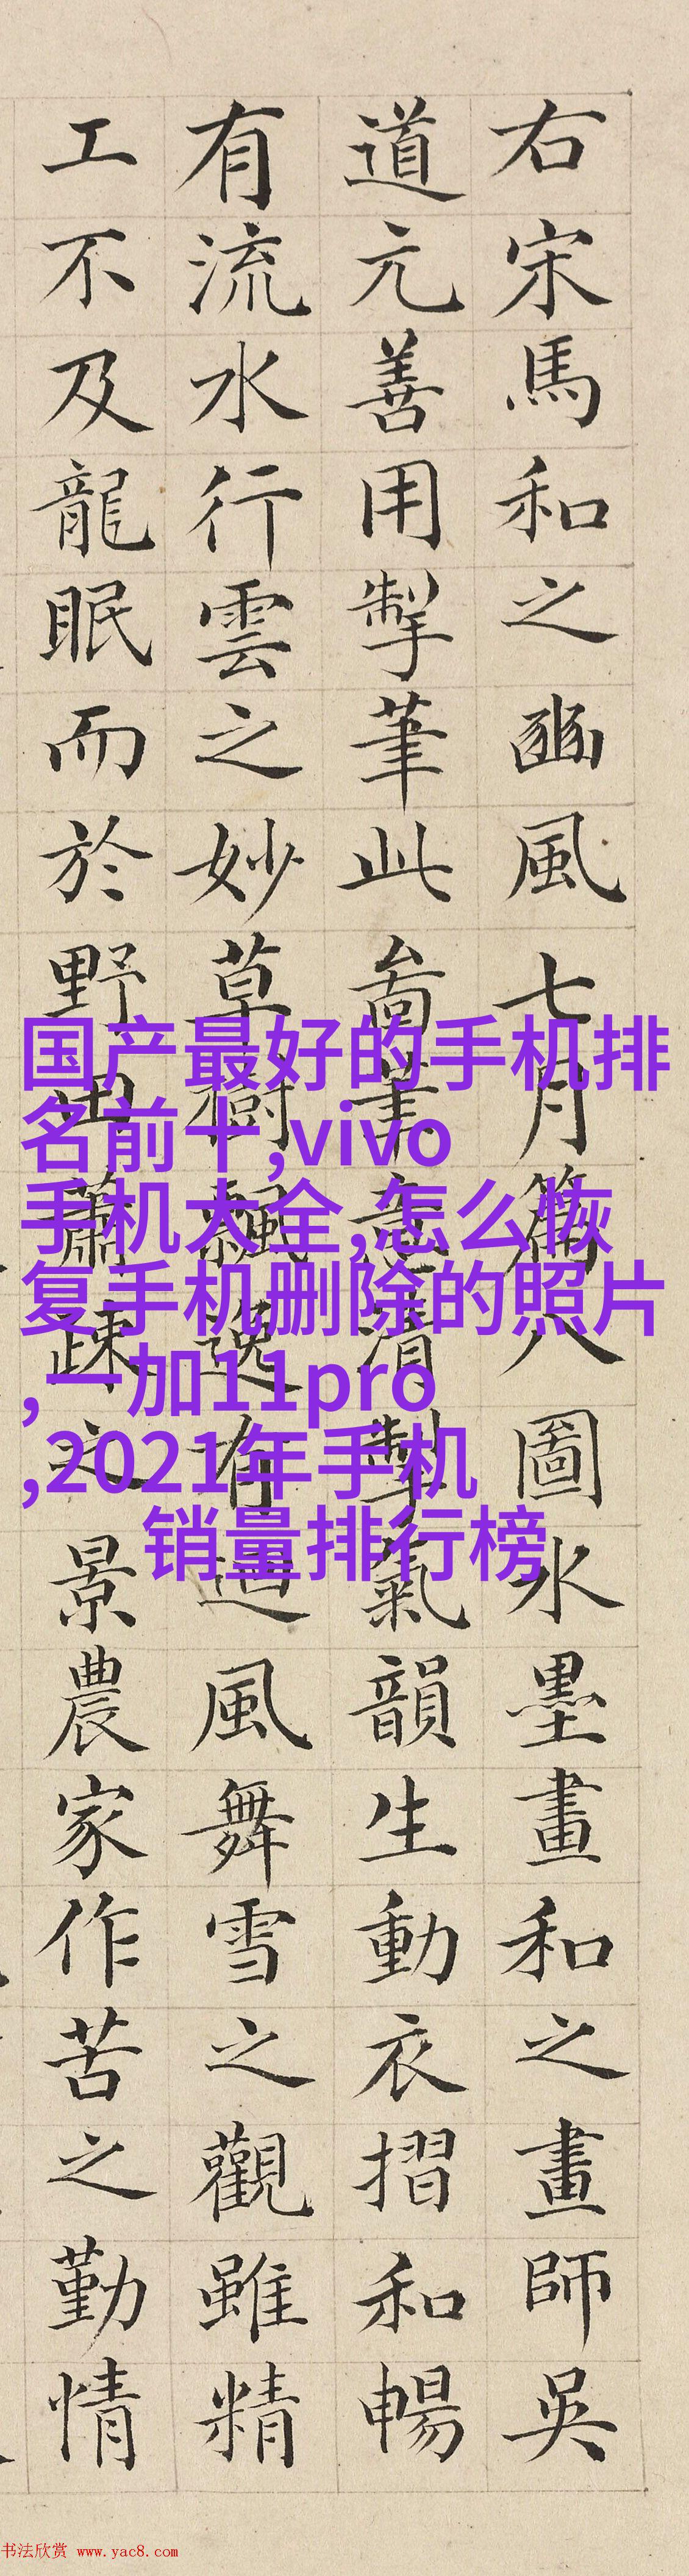 右宋馬和之豳風七月篇八圖水墨畫和之畫師吳
道元善用掣筆此啚筆意清掣氣韻生動衣摺和暢
有流水行雲之妙草樹飄逸有迴風舞雪之觀雖精
工不及龍眠而於野田蕭疎之景農家作苦之勤情
国产最好的手机排
名前十,vivo
手机大全,怎么恢
复手机删除的照片
,一加11pro
,2021年手机
销量排行榜
书法欣赏 www.yac8.com